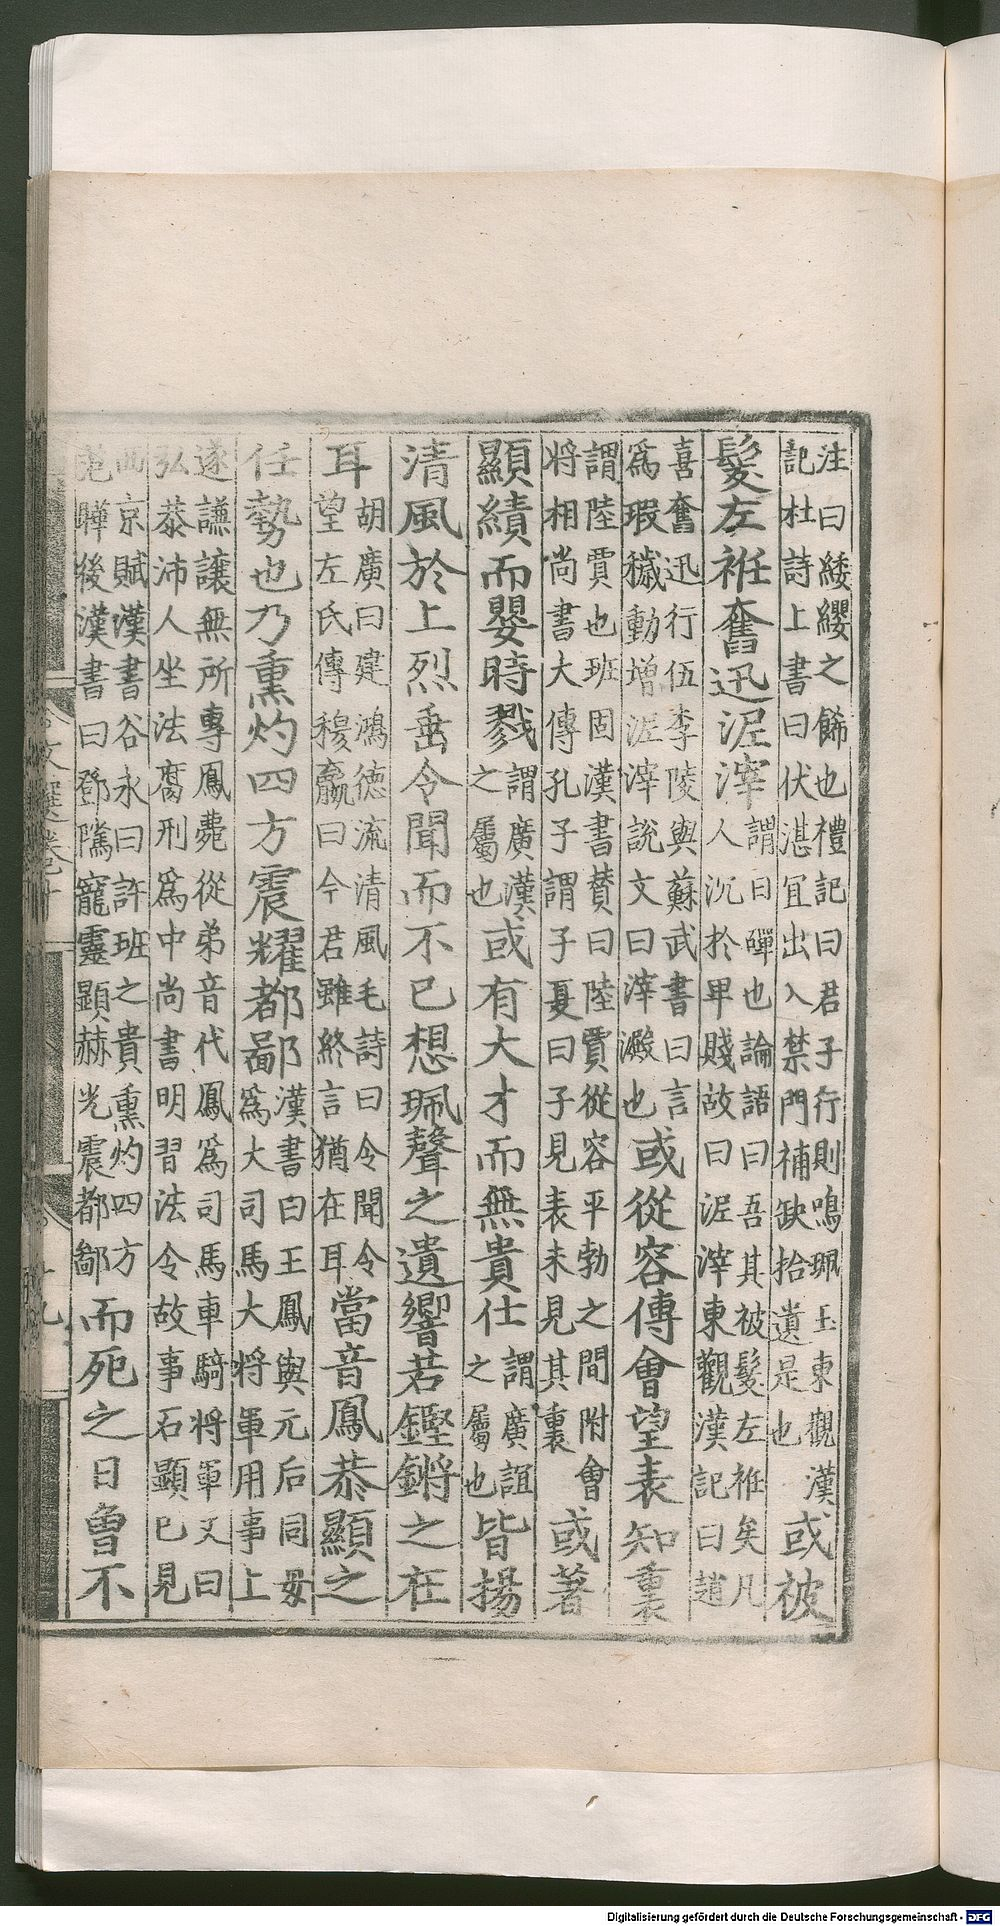 注曰緌纓之飾也禮記曰君子行則鳴珮玉東觀漢
記杜詩上書曰伏湛宜出入禁門補缺拾遺是也
或被
髮左袵奮迅泥滓
謂曰磾也論語曰吾其被髮左袵矣凡
人沉於卑賤故曰泥滓東觀漢記曰趙
喜奮迅行伍李陵與蘇武書曰言
爲瑕穢動增泥滓說文曰滓澱也
或從容傅會望表知裏
謂陸賈也班固漢書贊曰陸賈從容平勃之間附會
將相尚書大傳孔子謂子夏曰子見表未見其裏
或著
顯績而嬰時戮
謂廣漢
之屬也
或有大才而無貴仕
謂廣誼
之屬也
皆揚
清風於上烈垂令聞而不已想珮聲之遺響若鏗鏘之在
耳
胡廣曰建鴻德流清風毛詩曰令聞令
望左氏傳穆嬴曰今君雖終言猶在耳
當音鳳恭顯之
任勢也乃熏灼四方震耀都鄙
漢書曰王鳳與元后同毋
爲大司馬大將軍用事上
遂謙讓無所專鳳薨從弟音代鳳爲司馬車騎將軍又曰
弘恭沛人坐法腐刑爲中尚書明習法令故事石顯已見
西京賦漢書谷永曰許班之貴熏灼四方
范曄後漢書曰鄧隲寵靈顯赫光震都鄙
而死之日曾不
文選卷十
十九
Digitalisierung gefördert durch die Deutsche Forschungsgemeinschaft - DFG